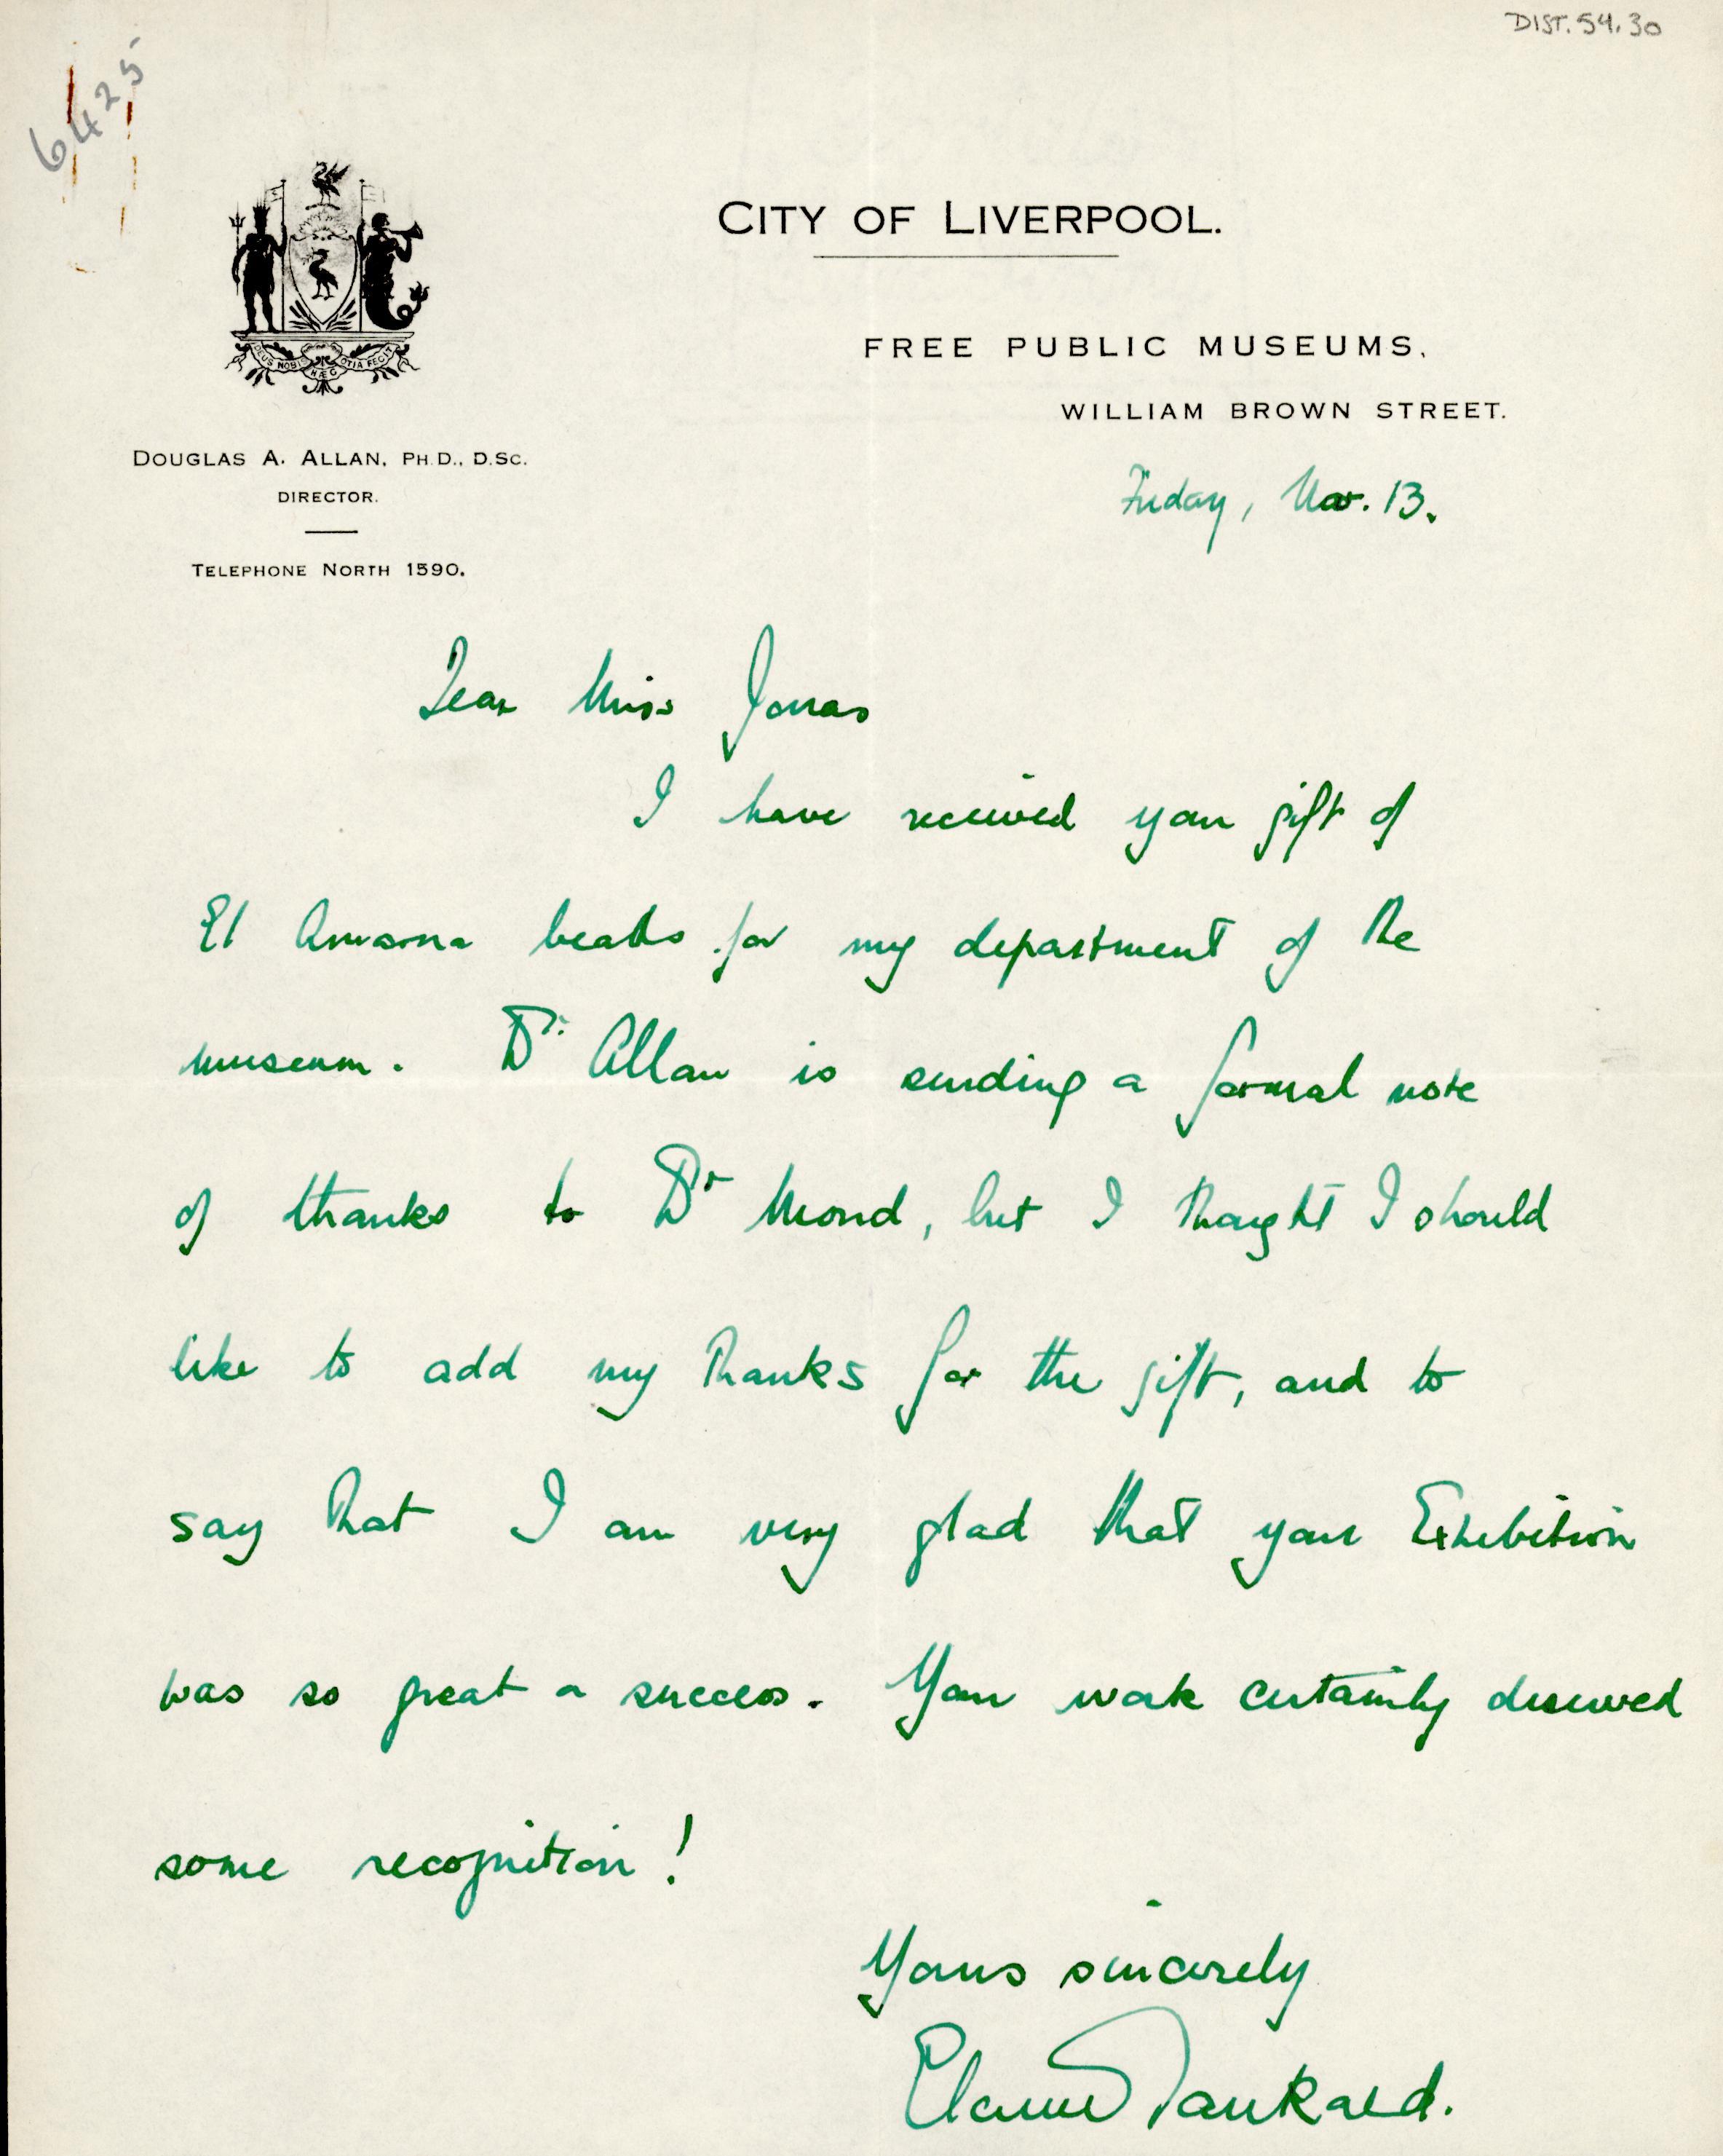 DIST. 54.30
6425
CITY OF LIVERPOOL.
FREE PUBLIC MUSEUMS,
WILLIAM BROWN STREET.
DEUS NOBIS HÆC OTIA FECIT
DOUGLAS A. ALLAN, PH.D., D.SC.
DIRECTOR.
TELEPHONE NORTH 1590.
Friday, Nov. 13.
Dear Miss Jonas
I have received your gift of
El Amarna beads for my department of the
museum. Dr. Allan is sending a formal note
of thanks to Dr Mond, but I thought I should
like to add my thanks for the gift, and to
say that I am very glad that your Exhibition
was so great a success. Your work certainly deserved
some recognition!
Yours sincerely
Elaine Tankard.